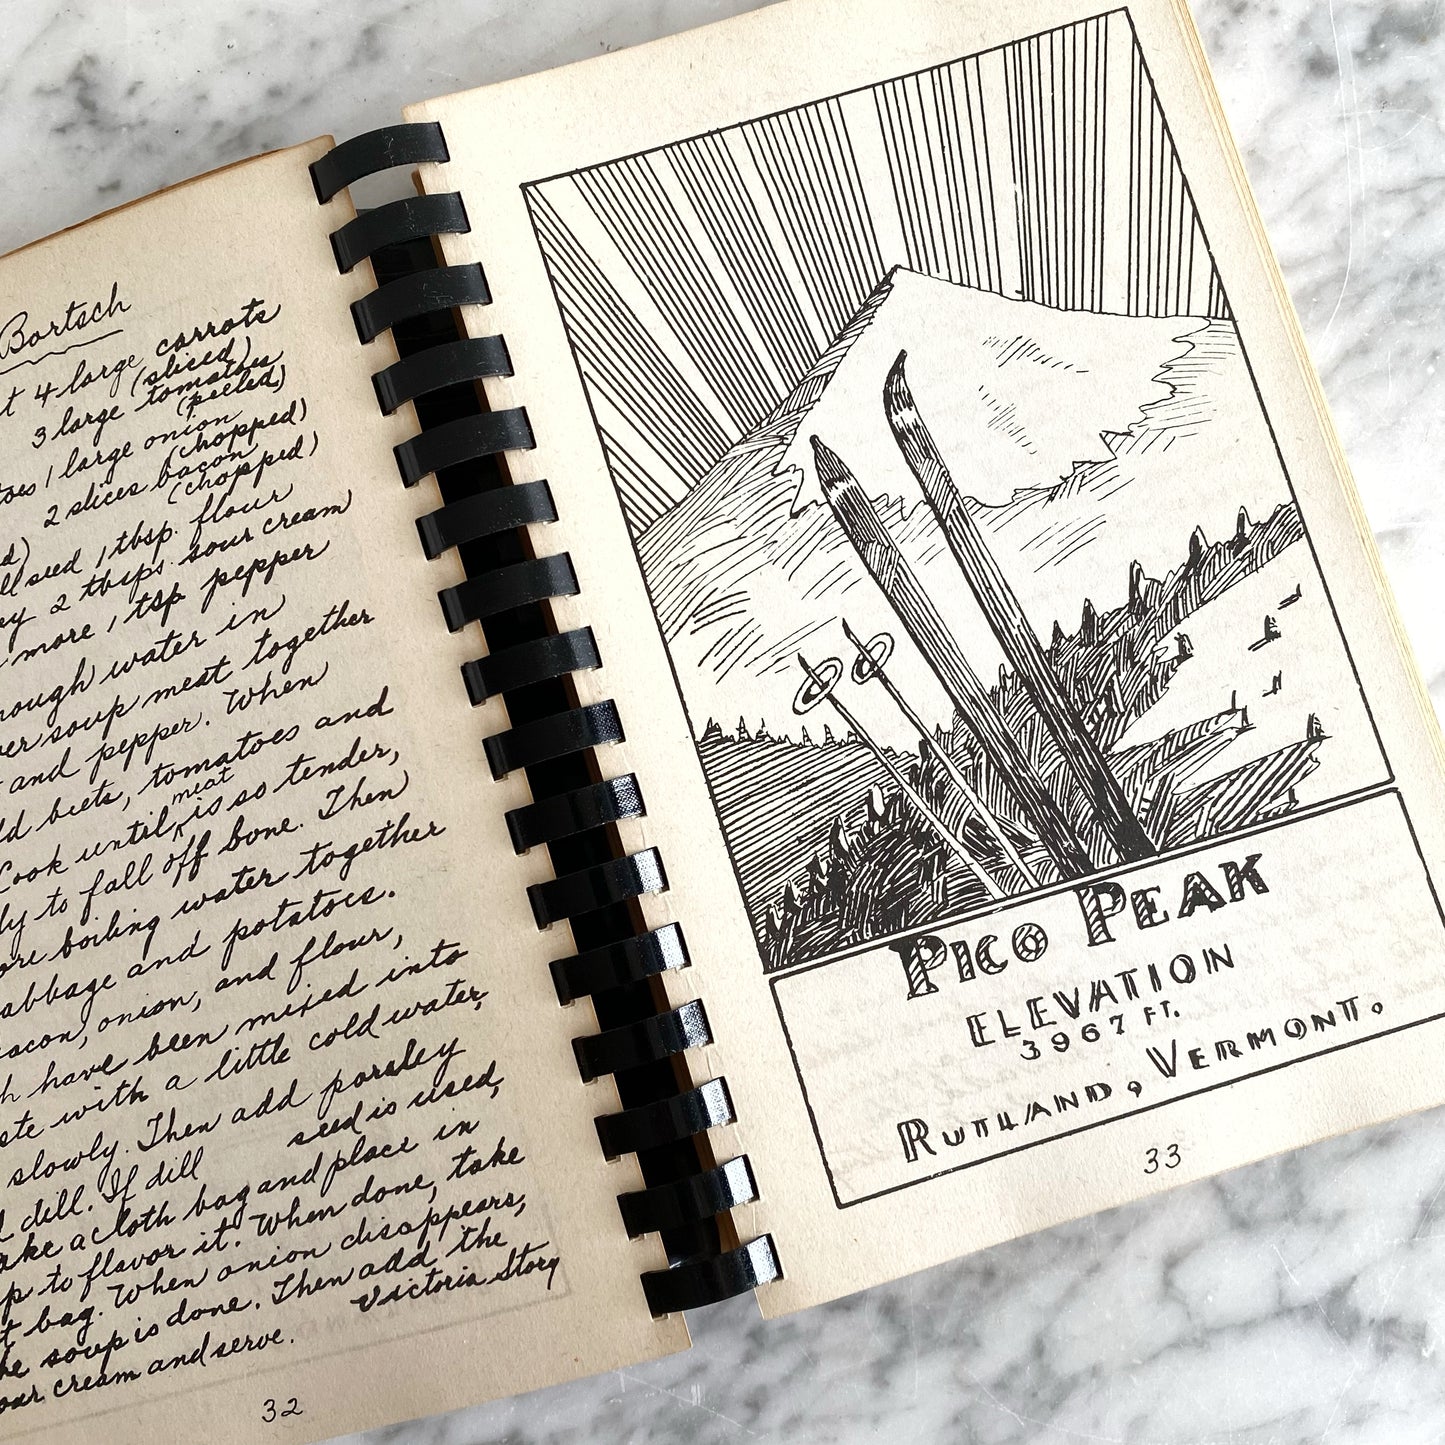 Bortsch
4 large carrots
(sliced)
3 large tomatoes
(peeled)
1 large onion
(chopped)
2 slices bacon
(chopped)
seed 1 tbsp. flour
2 tbsps. sour cream
more 1 tsp pepper
water in
soup meat together
and pepper. When
beets, tomatoes and
meat
Cook until is so tender,
to fall off bone. Then
boiling water together
and potatoes.
onion, and flour,
have been mixed into
with a little cold water,
slowly. Then add parsley
dill. If dill seed is used,
a cloth bag and place in
to flavor it. When done, take
bag. When onion disappears,
soup is done. Then add the
cream and serve.
Victoria Story
32
PICO PEAK
ELEVATION
3967 FT.
RUTLAND, VERMONT.
33